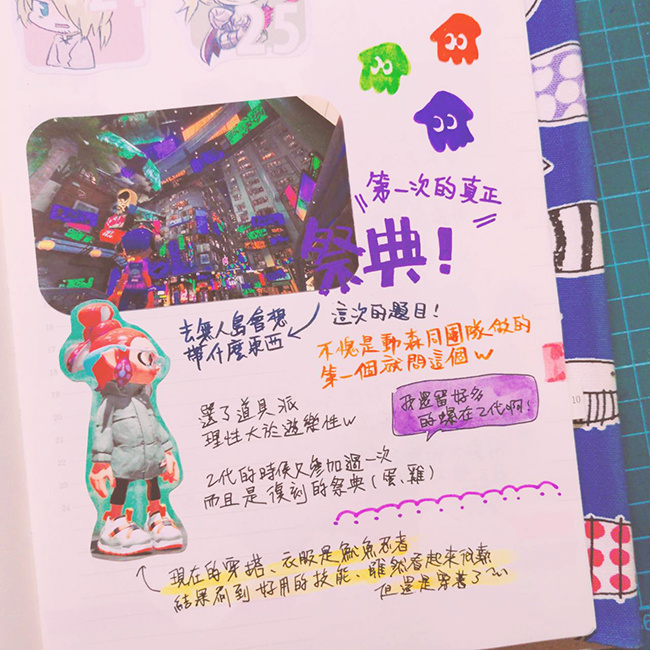 25
第一次的真正
祭典!
這次的題目!
去無人島會想
帶什麼東西
不愧是動森同團隊做的
第一個就問這個w
選了道具派
理性大於遊樂性w
我還留好多
的螺在2代啊!
2代的時候只參加過一次
而且是復刻的祭典(蛋、雞)
現在的穿搭、衣服是魷魚忍者
結果刷到好用的技能、雖然看起來很熱
但還是穿著了~